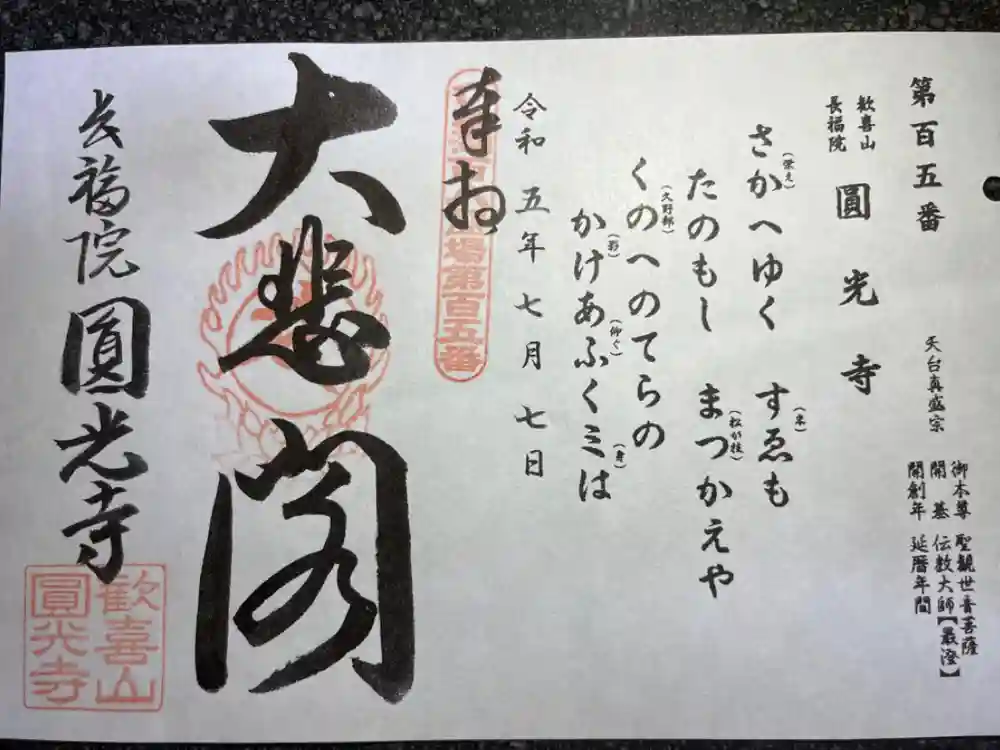 第百五番
天台真盛宗
御本尊 聖観世音菩薩
開基 伝教大師【最澄】
開創年 延暦年間
歓喜山
長福院
圓光寺
さかへゆく すゑも
(栄え)
(末)
たのもし まつかえや
(松が枝)
くのへのてらの
(久野部)
かけあふくミは
(影)
(仰ぐ)
(身)
令和五年七月七日
奉拝
場第百五番
大悲閣
長福院 圓光寺
歓喜山
圓光寺